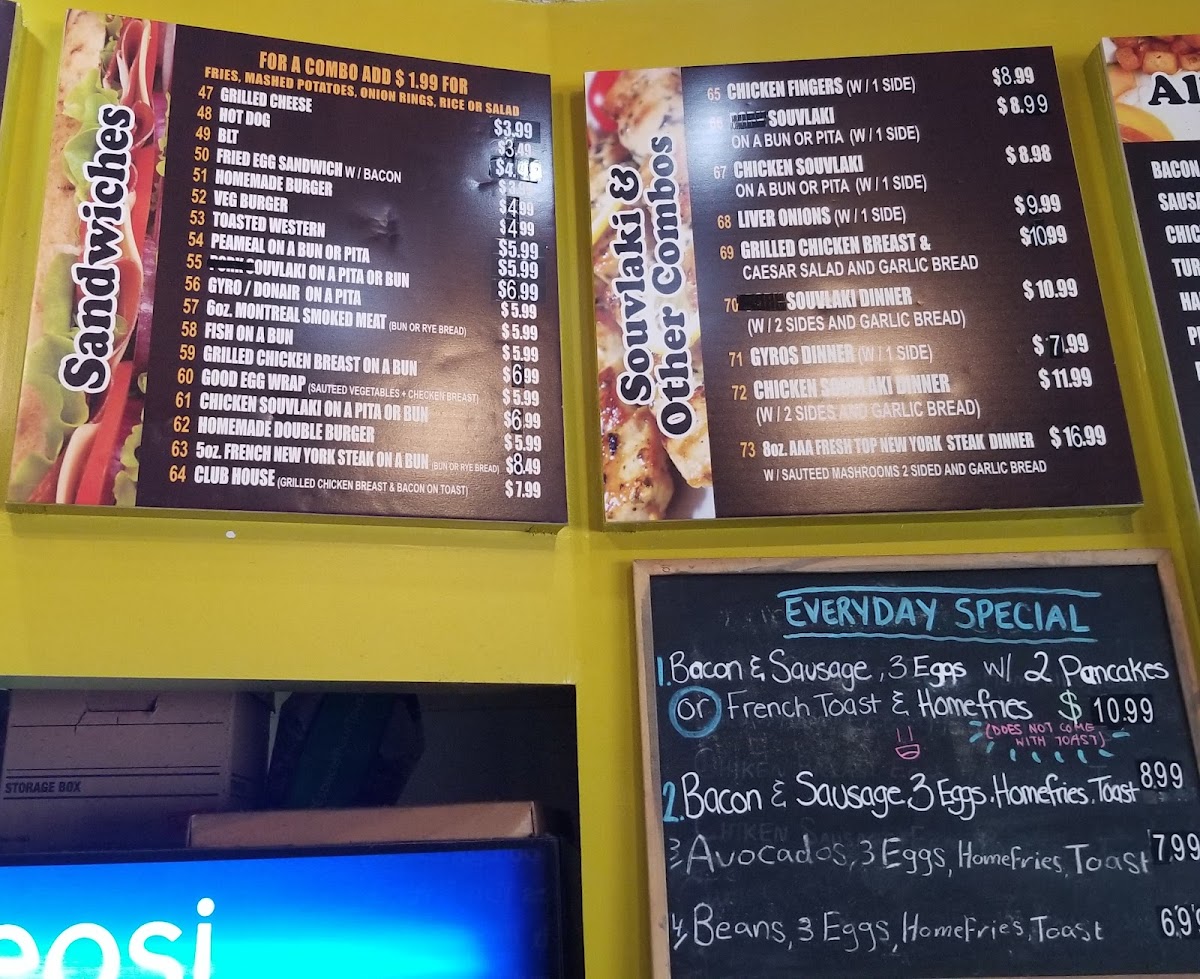 Sandwiches
FOR A COMBO ADD $ 1.99 FOR
FRIES, MASHED POTATOES, ONION RINGS, RICE OR SALAD
47 GRILLED CHEESE $3.99
48 HOT DOG $3.49
49 BLT $4.49
50 FRIED EGG SANDWICH W / BACON
51 HOMEMADE BURGER $4.99
52 VEG BURGER $4.99
53 TOASTED WESTERN $5.99
54 PEAMEAL ON A BUN OR PITA $5.99
55 SOUVLAKI ON A PITA OR BUN $6.99
56 GYRO / DONAIR ON A PITA $5.99
57 6oz. MONTREAL SMOKED MEAT (BUN OR RYE BREAD) $5.99
58 FISH ON A BUN $5.99
59 GRILLED CHICKEN BREAST ON A BUN $6.99
60 GOOD EGG WRAP (SAUTEED VEGETABLES + CHECKEN BREAST) $5.99
61 CHICKEN SOUVLAKI ON A PITA OR BUN $6.99
62 HOMEMADE DOUBLE BURGER $5.99
63 5oz. FRENCH NEW YORK STEAK ON A BUN (BUN OR RYE BREAD) $8.49
64 CLUB HOUSE (GRILLED CHICKEN BREAST & BACON ON TOAST) $7.99
Souvlaki &
Other Combos
65 CHICKEN FINGERS (W / 1 SIDE) $8.99
SOUVLAKI $8.99
ON A BUN OR PITA (W / 1 SIDE)
67 CHICKEN SOUVLAKI $8.98
ON A BUN OR PITA (W / 1 SIDE)
68 LIVER ONIONS (W / 1 SIDE) $9.99
69 GRILLED CHICKEN BREAST & $10.99
CAESAR SALAD AND GARLIC BREAD
70 SOUVLAKI DINNER $10.99
(W / 2 SIDES AND GARLIC BREAD)
71 GYROS DINNER (W / 1 SIDE) $7.99
72 CHICKEN SOUVLAKI DINNER $11.99
(W / 2 SIDES AND GARLIC BREAD)
73 8oz. AAA FRESH TOP NEW YORK STEAK DINNER $16.99
W / SAUTEED MASHROOMS 2 SIDED AND GARLIC BREAD
BACON
EVERYDAY SPECIAL
1. Bacon & Sausage, 3 Eggs w/ 2 Pancakes
or French Toast & Homefries $ 10.99
(DOES NOT COME
WITH TOAST)
2. Bacon & Sausage. 3 Eggs. Homefries. Toast 8.99
3/ Avocados, 3 Eggs, Homefries, Toast 7.99
4/ Beans, 3 Eggs, Homefries, Toast
STORAGE BOX
epsi